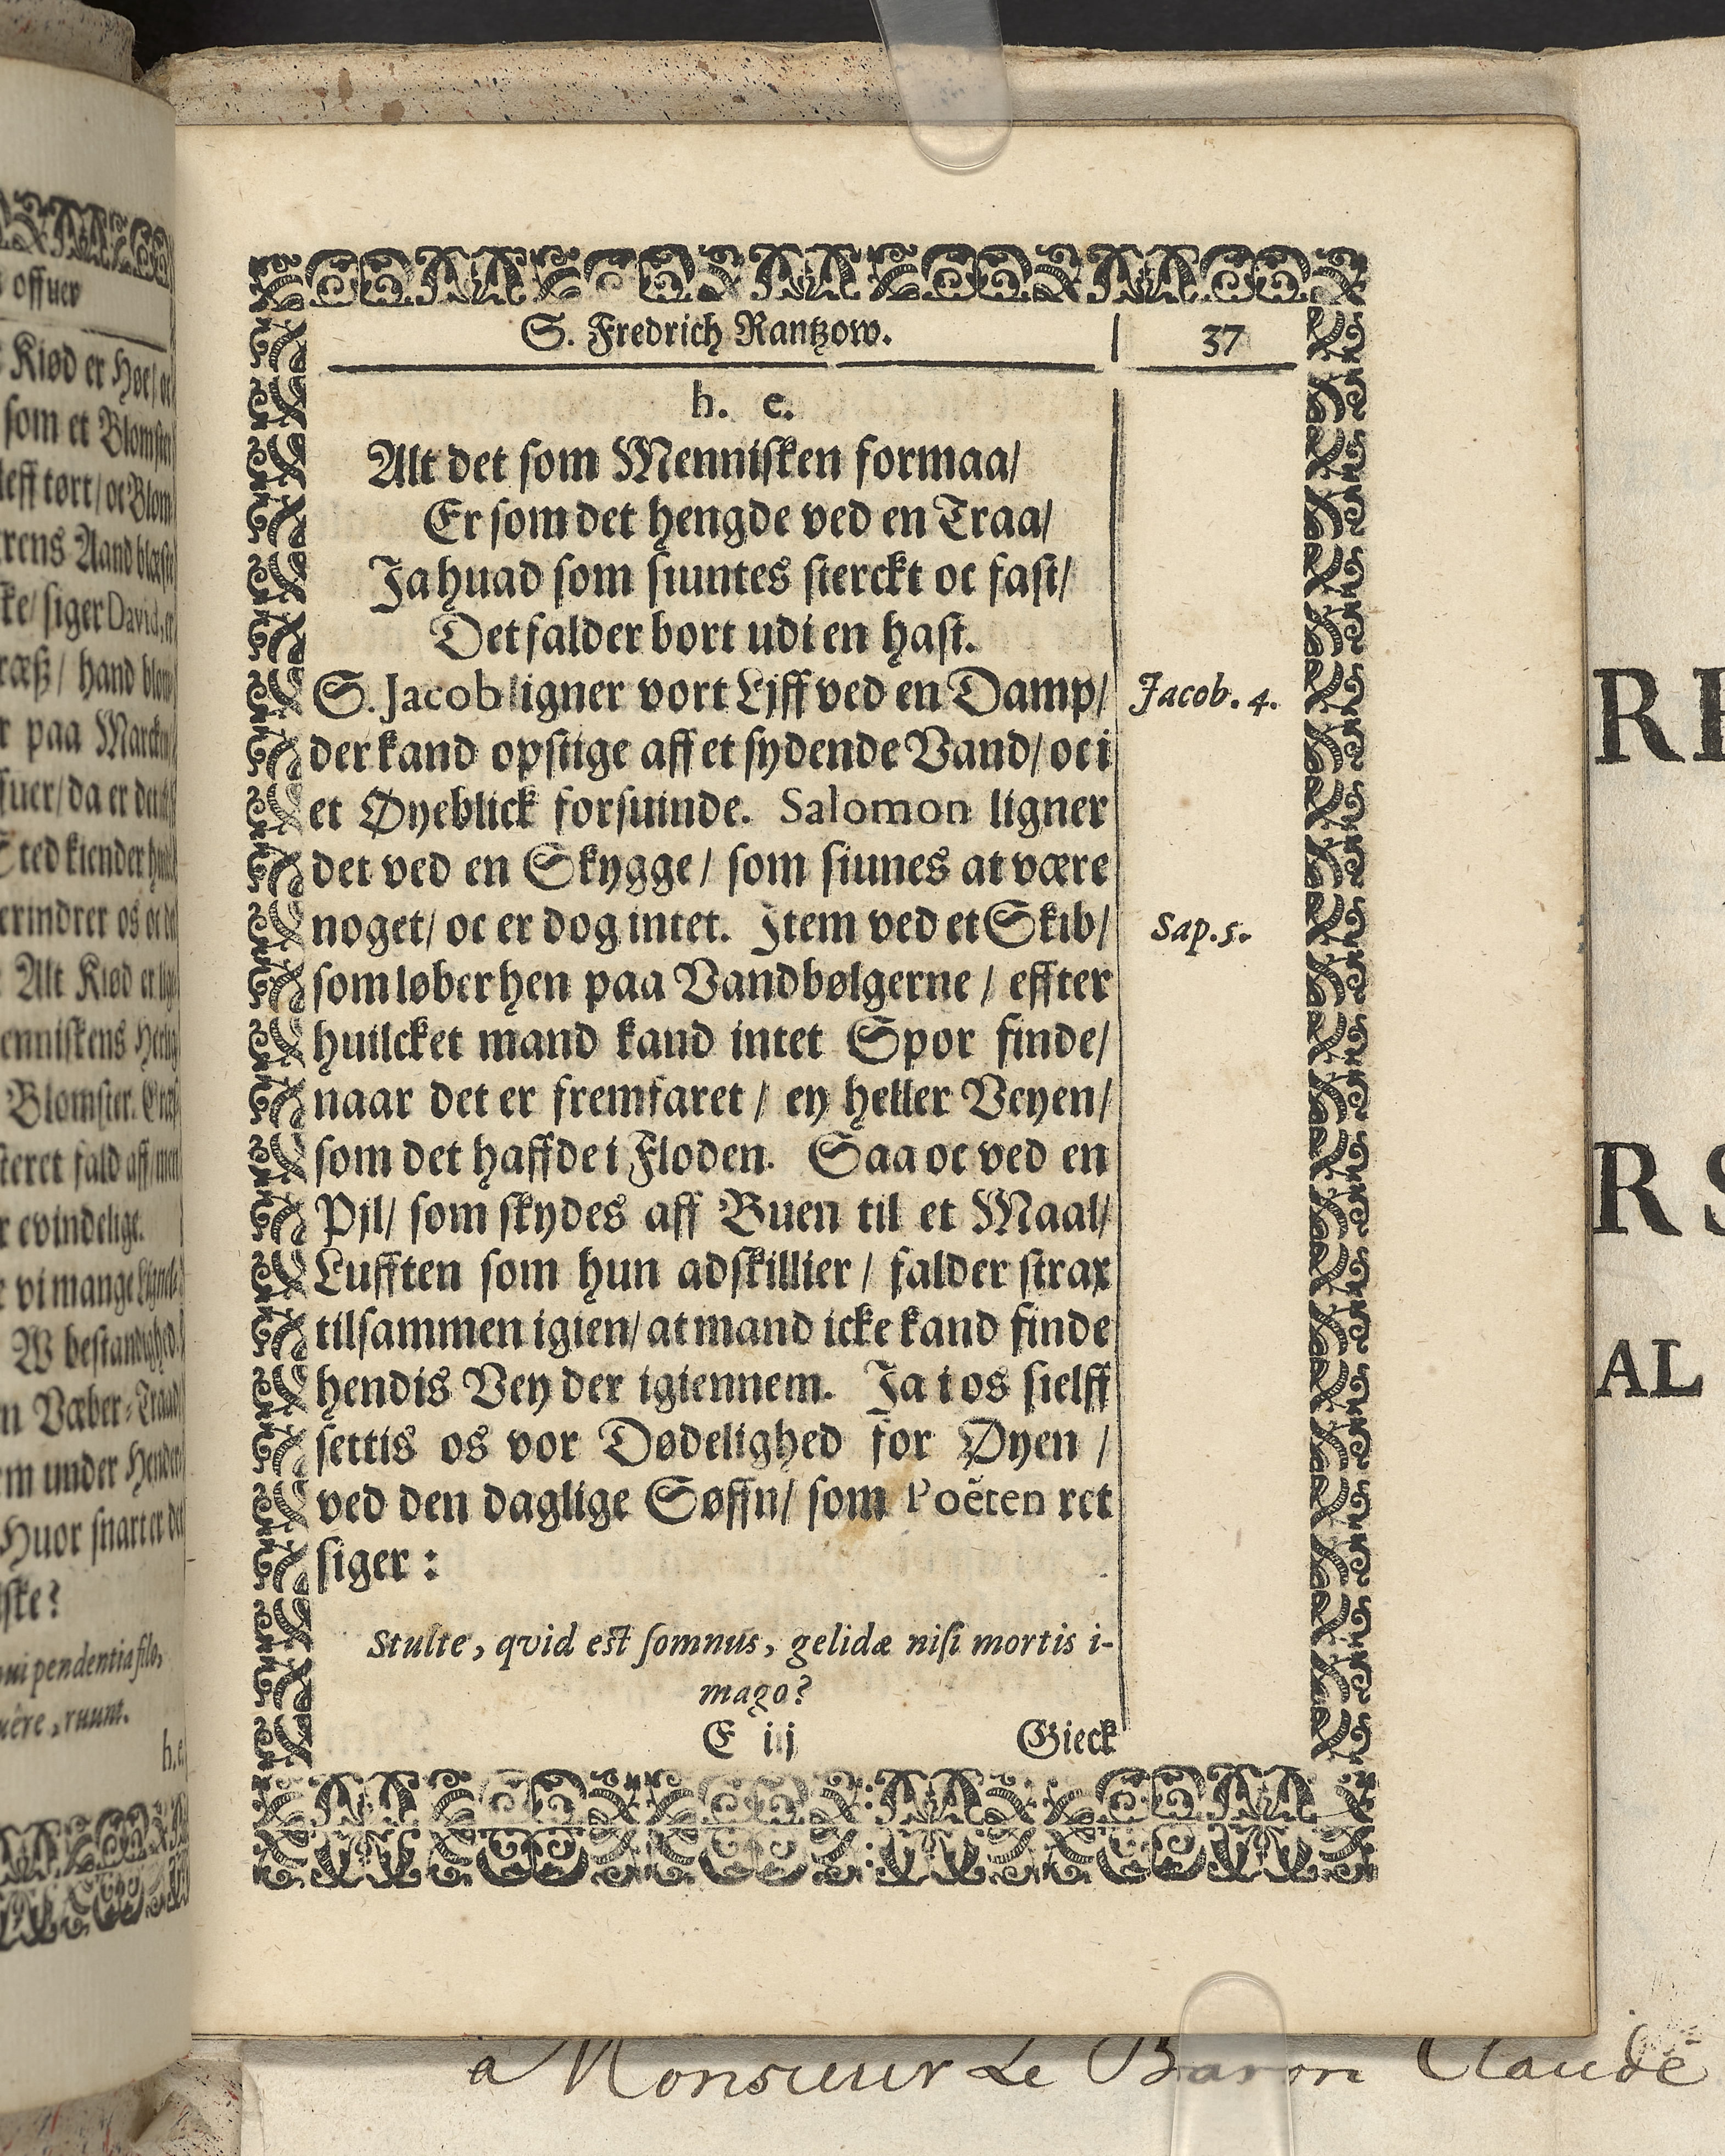 offuer
Kiød er Høe/ oc
som et Blomster
leff tørt/ oc Blom
rens Aand blæse
ke/ siger David, er
ræß/ hand blom
r paa Marcken
suer/ da er den
Sted kiender
erindrer os oc
Alt Kiød er
enniskens
Blomster.
steret fald aff/ men
r evindelige.
e vi mange
W bestandighed.
n Væber-Traad
m under
Huor snart er det
ske?
ui pendentia filo,
uêre, ruunt.
h. e.
S. Fredrich Rantzow. 37
h. e.
Alt det som Mennisken formaa/
Er som det hengde ved en Traa/
Ja huad som siuntes sterckt oc fast/
Det falder bort udi en hast.
S. Jacob ligner vort Lijff ved en Damp/ Jacob. 4.
der kand opstige aff et sydende Vand/ oc i
et Øyeblick forsuinde. Salomon ligner
det ved en Skygge/ som siunes at være
noget/ oc er dog intet. Item ved et Skib/ Sap. 5.
som løber hen paa Vandbølgerne/ effter
huilcket mand kand intet Spor finde/
naar det er fremfaret/ ey heller Veyen/
som det haffde i Floden. Saa oc ved en
Pjl/ som skydes aff Buen til et Maal/
Lufften som hun adskillier/ falder strax
tilsammen igien/ at mand icke kand finde
hendis Vey der igiennem. Ja i os sielff
settis os vor Dødelighed for Øyen/
ved den daglige Søffn/ som Poëten ret
siger:
Stulte, qvid est somnus, gelidæ nisi mortis i-
mago?
E iij Gieck
R
R S
AL
a Monsieur Le Baron Claude